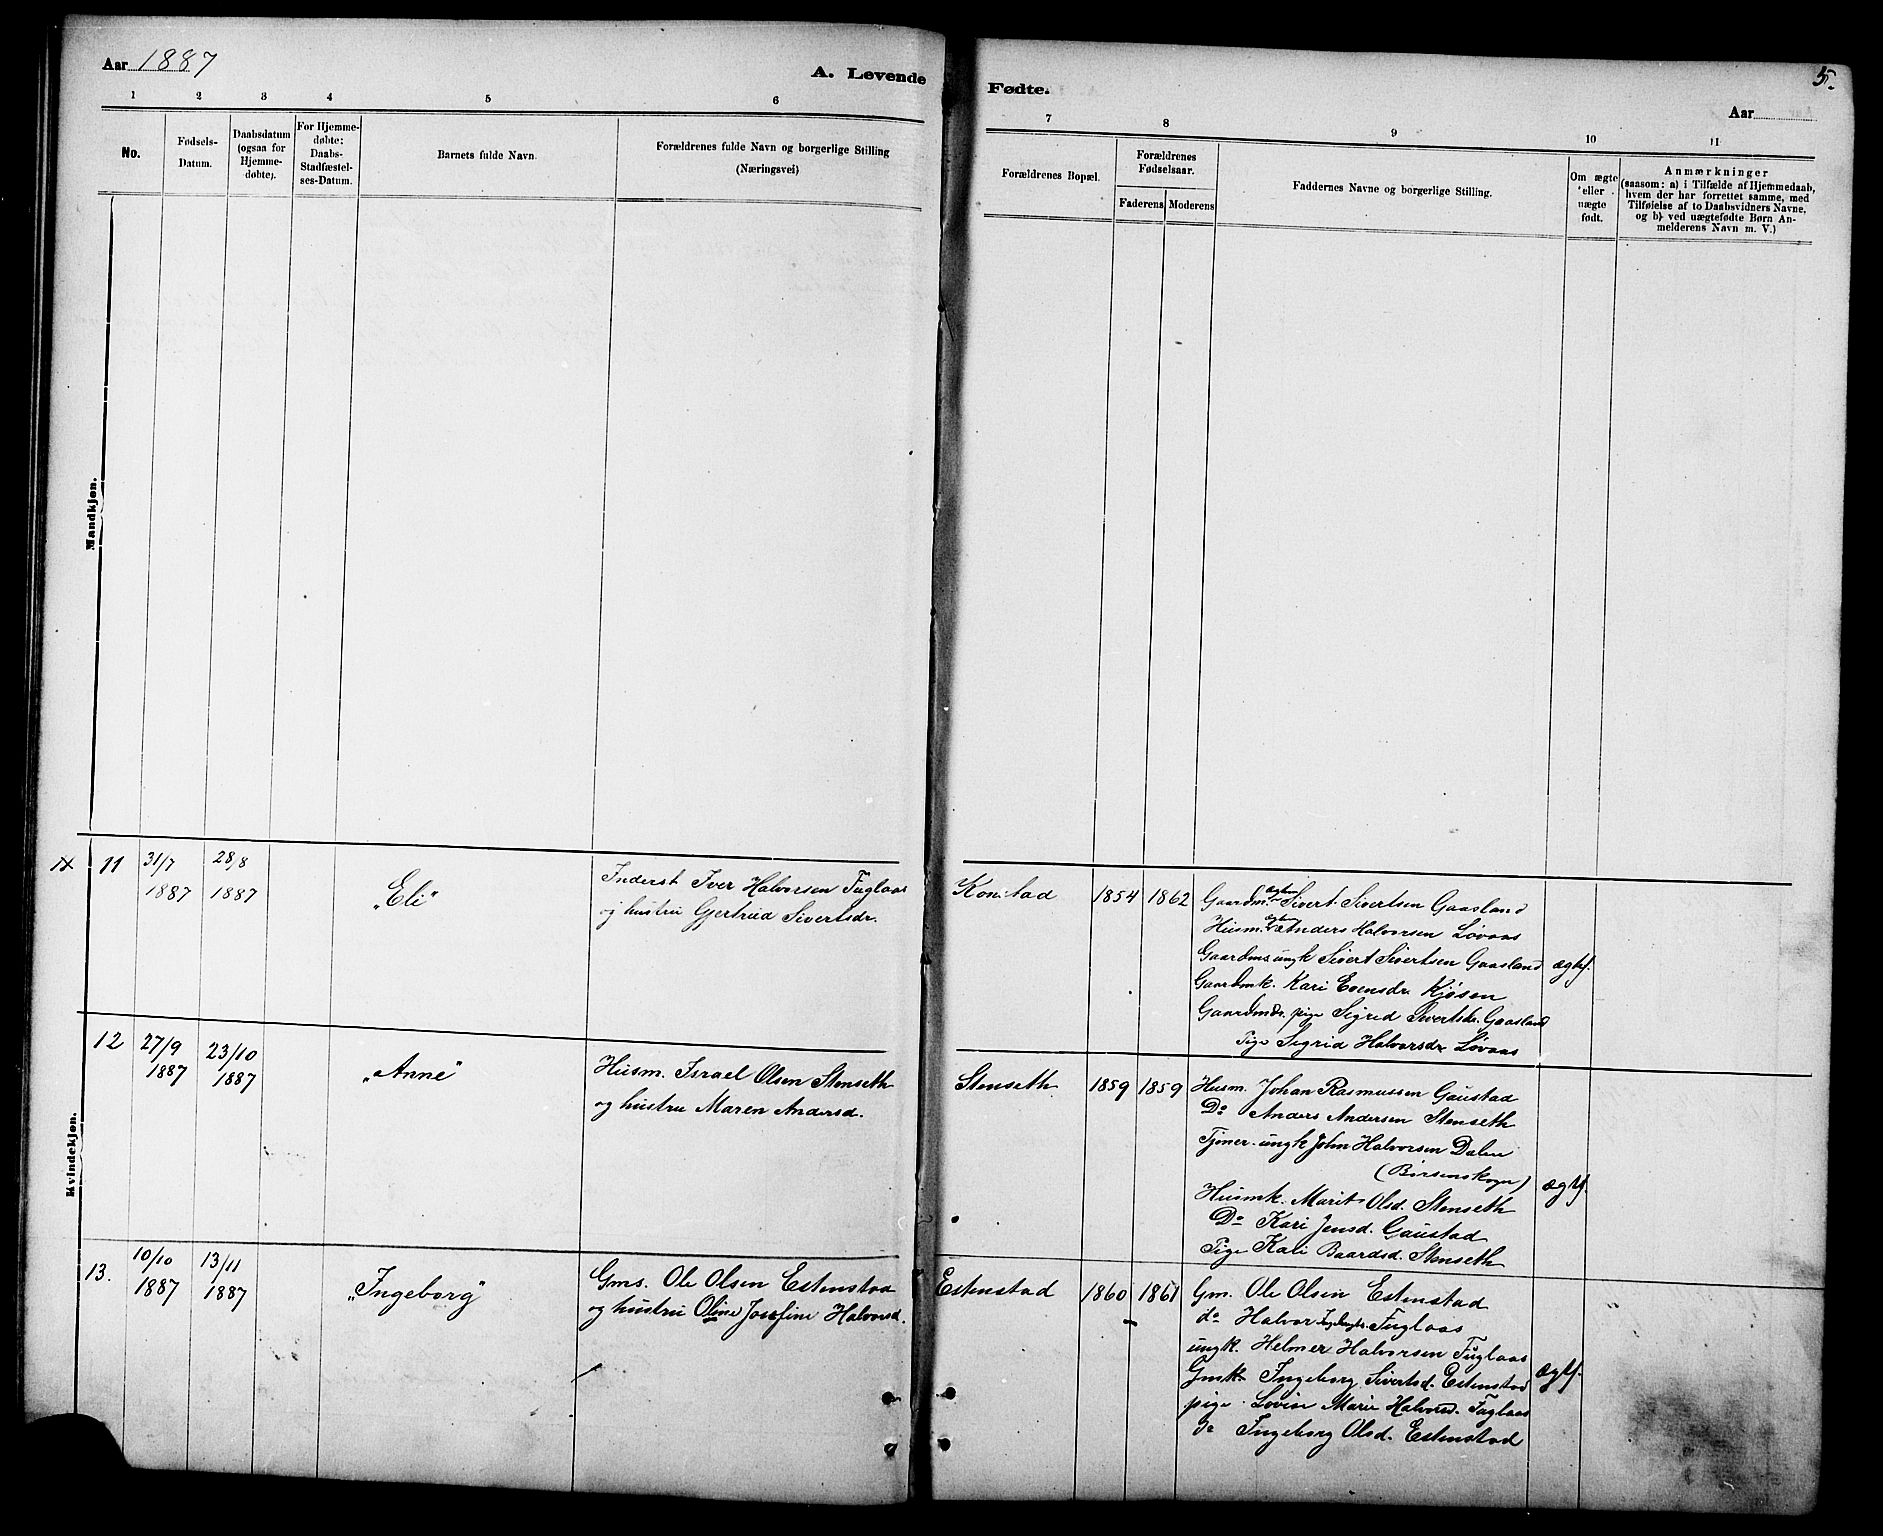 Aar 1887
A. Levende
1 2 3 4 5 6
No.
Fødsels-
Datum.
Daabsdatum
(ogsaa for
Hjemme-
døbte).
For Hjemme-
døbte:
Daabs-
Stadfæstel-
ses-Datum.
Barnets fulde Navn.
Forældrenes fulde Navn og borgerlige Stilling
(Næringsvei)
Mandkjøn.
11 31/7 28/8
1887 1887
„Eli“
Inderst Iver Halvorsen Fuglaas
og hustru Gjertrud Sivertsdr.
Kvindekjøn.
12 27/9 23/10
1887 1887
„Anne“
Husm. Israel Olsen Stenseth
og hustru Maren Andersd.
13. 10/10 13/11
1887 1887
„Ingeborg“
Gms. Ole Olsen Estenstad
og hustru Oline Josefine Halvorsd.
5.
Fødte.
Aar
7 8 9 10 11
Forældrenes Bopæl.
Forældrenes
Fødselsaar.
Faderens Moderens
Faddernes Navne og borgerlige Stilling.
Om ægte
eller
uægte
født.
Anmærkninger
(saasom: a) i Tilfælde af Hjemmedaab,
hvem der har forrettet samme, med
Tilføielse af to Daabsvidners Navne,
og b) ved uægtefødte Børn An-
melderens Navn m. V.)
Konstad 1854 1862
Gaardm. Sivert Sivertsen Gaasland
Husm. Anders Halvorsen Løvaas
Gaardms. ungk Sivert Sivertsen Gaasland ægtf.
Gaardmk. Kari Evensdr. Kjøsen
Gaardmds. pige Sigrid Sivertsdr. Gaasland
Pige Sigrid Halvorsdr Løvaas
Stenseth 1859 1859
Husm. Johan Rasmussen Gaustad
Do Anders Andersen Stenseth
Tjener. ungk John Halvorsen Dalen
(Børsenskogn) ægtf.
Husmk. Marit Olsd. Stenseth
Do Kari Jensd. Gaustad
Pige Kali Baardsd. Stenseth
Estenstad 1860 1861
Gm. Ole Olsen Estenstad
do Halvor Fuglaas
ungk. Helmer Halvorsen Fuglaas
Gmk. Ingeborg Sivertsd. Estenstad ægtf.
pige Lovise Marie Halvorsd. Fuglaas
do Ingeborg Olsd. Estenstad